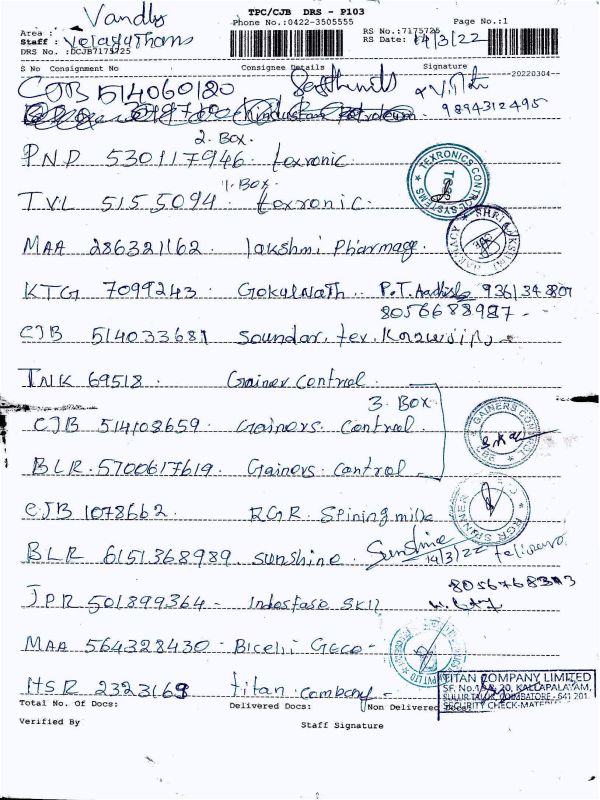 Vandly
TPC/CJB DRS - P103
Phone No.:0422-3505555
Page No.:1
Area :
Staff : Velayutham
DRS No. :DCJB7175725
RS No.:7175725
RS Date: 14/3/22
S No Consignment No Consignee Details Signature
20220304--
CJB 514060180
9894312495
2. Box.
PND 530117946. texronic.
1. Box.
TVL 5155094. texronic.
TEXRONICS CONTROL SYSTEMS
MAA 286321162. lakshmi Pharmacy.
SHRI LAKSHMI PHARMACY
KTG 7099243. Gokulnath. P.T.
8056688987 -
CJB 514033681 Soundar. tex.
TNK 69518. Gainer control.
3. Box
CJB 514108659. Gainers control.
GAINERS CONTROL
BLR. 5700617619. Gainers control
CJB 1078662. RGR. Spining mills
RGR SPINNER
BLR 6151368989 sunshine. Sunshine
14/3/22
8056768343
JPR 501899364 - SKU
MAA 564328430 - Geco -
HSR 2323169 titan company -
TITAN COMPANY LIMITED
SF. No. 20, KALLAPALAYAM,
SULUR TALUK, COIMBATORE - 641 201.
SECURITY CHECK-MATERIAL
Total No. Of Docs: Delivered Docs: Non Delivered Docs:
Verified By
Staff Signature